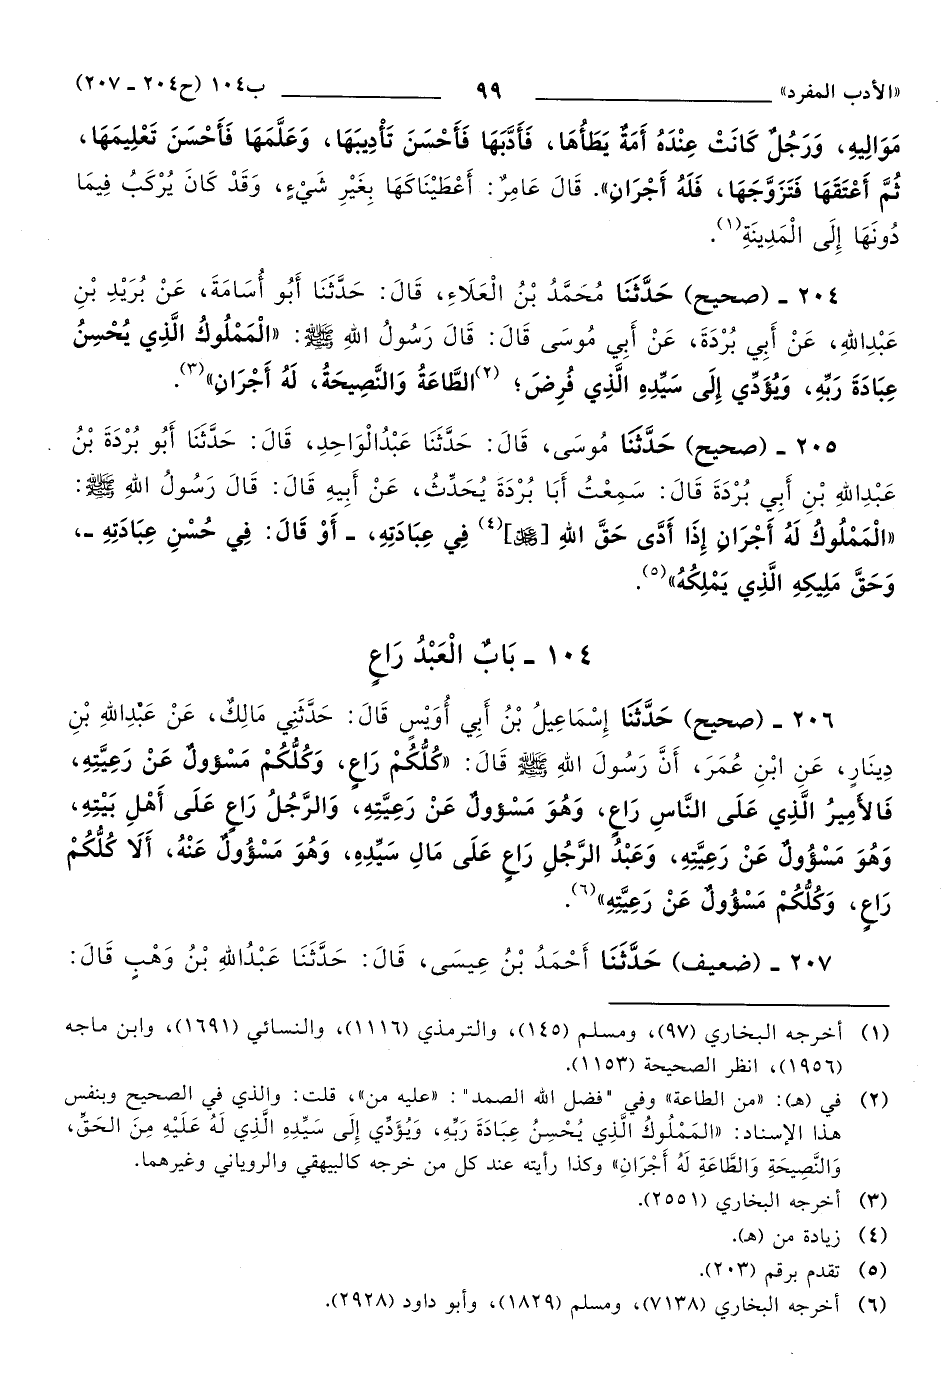 «الأدب المفرد» ٩٩ ب١٠٤ (ح٢٠٤ ـ ٢٠٧)
مَوَالِيهِ، وَرَجُلٌ كَانَتْ عِنْدَهُ أَمَةٌ يَطَأُهَا، فَأَدَّبَهَا فَأَحْسَنَ تَأْدِيبَهَا، وَعَلَّمَهَا فَأَحْسَنَ تَعْلِيمَهَا،
ثُمَّ أَعْتَقَهَا فَتَزَوَّجَهَا، فَلَهُ أَجْرَانِ». قَالَ عَامِرٌ: أَعْطَيْنَاكَهَا بِغَيْرِ شَيْءٍ، وَقَدْ كَانَ يُرْكَبُ فِيمَا
دُونَهَا إِلَى الْمَدِينَةِ(١).
٢٠٤ ـ (صحيح) حَدَّثَنَا مُحَمَّدُ بْنُ الْعَلَاءِ، قَالَ: حَدَّثَنَا أَبُو أُسَامَةَ، عَنْ بُرَيْدِ بْنِ
عَبْدِاللهِ، عَنْ أَبِي بُرْدَةَ، عَنْ أَبِي مُوسَى قَالَ: قَالَ رَسُولُ اللهِ ﷺ: «الْمَمْلُوكُ الَّذِي يُحْسِنُ
عِبَادَةَ رَبِّهِ، وَيُؤَدِّي إِلَى سَيِّدِهِ الَّذِي فُرِضَ؛ (٢)الطَّاعَةُ وَالنَّصِيحَةُ، لَهُ أَجْرَانِ»(٣).
٢٠٥ ـ (صحيح) حَدَّثَنَا مُوسَى، قَالَ: حَدَّثَنَا عَبْدُالْوَاحِدِ، قَالَ: حَدَّثَنَا أَبُو بُرْدَةَ بْنُ
عَبْدِاللهِ بْنِ أَبِي بُرْدَةَ قَالَ: سَمِعْتُ أَبَا بُرْدَةَ يُحَدِّثُ، عَنْ أَبِيهِ قَالَ: قَالَ رَسُولُ اللهِ ﷺ:
«الْمَمْلُوكُ لَهُ أَجْرَانِ إِذَا أَدَّى حَقَّ اللهِ [](٤) فِي عِبَادَتِهِ، ـ أَوْ قَالَ: فِي حُسْنِ عِبَادَتِهِ ـ،
وَحَقَّ مَلِيكِهِ الَّذِي يَمْلِكُهُ»(٥).
١٠٤ ـ بَابٌ الْعَبْدُ رَاعٍ
٢٠٦ ـ (صحيح) حَدَّثَنَا إِسْمَاعِيلُ بْنُ أَبِي أُوَيْسٍ قَالَ: حَدَّثَنِي مَالِكٌ، عَنْ عَبْدِاللهِ بْنِ
دِينَارٍ، عَنِ ابْنِ عُمَرَ، أَنَّ رَسُولَ اللهِ ﷺ قَالَ: «كُلُّكُمْ رَاعٍ، وَكُلُّكُمْ مَسْؤولٌ عَنْ رَعِيَّتِهِ،
فَالأَمِيرُ الَّذِي عَلَى النَّاسِ رَاعٍ، وَهُوَ مَسْؤولٌ عَنْ رَعِيَّتِهِ، وَالرَّجُلُ رَاعٍ عَلَى أَهْلِ بَيْتِهِ،
وَهُوَ مَسْؤُولٌ عَنْ رَعِيَّتِهِ، وَعَبْدُ الرَّجُلِ رَاعٍ عَلَى مَالِ سَيِّدِهِ، وَهُوَ مَسْؤُولٌ عَنْهُ، أَلَا كُلُّكُمْ
رَاعٍ، وَكُلُّكُمْ مَسْؤُولٌ عَنْ رَعِيَّتِهِ»(٦).
٢٠٧ ـ (ضعيف) حَدَّثَنَا أَحْمَدُ بْنُ عِيسَى، قَالَ: حَدَّثَنَا عَبْدُاللهِ بْنُ وَهْبٍ قَالَ:
(١) أخرجه البخاري (٩٧)، ومسلم (١٤٥)، والترمذي (١١١٦)، والنسائي (١٦٩١)، وابن ماجه
(١٩٥٦)، انظر الصحيحة (١١٥٣).
(٢) في (هـ): «من الطاعة» وفي "فضل الله الصمد": «عليه من»، قلت: والذي في الصحيح وبنفس
هذا الإسناد: «المَمْلُوكُ الَّذِي يُحْسِنُ عِبَادَةَ رَبِّهِ، وَيُؤَدِّي إِلَى سَيِّدِهِ الَّذِي لَهُ عَلَيْهِ مِنَ الحَقِّ،
وَالنَّصِيحَةِ وَالطَّاعَةِ لَهُ أَجْرَانِ» وكذا رأيته عند كل من خرجه كالبيهقي والروياني وغيرهما.
(٣) أخرجه البخاري (٢٥٥١).
(٤) زيادة من (هـ).
(٥) تقدم برقم (٢٠٣).
(٦) أخرجه البخاري (٧١٣٨)، ومسلم (١٨٢٩)، وأبو داود (٢٩٢٨).